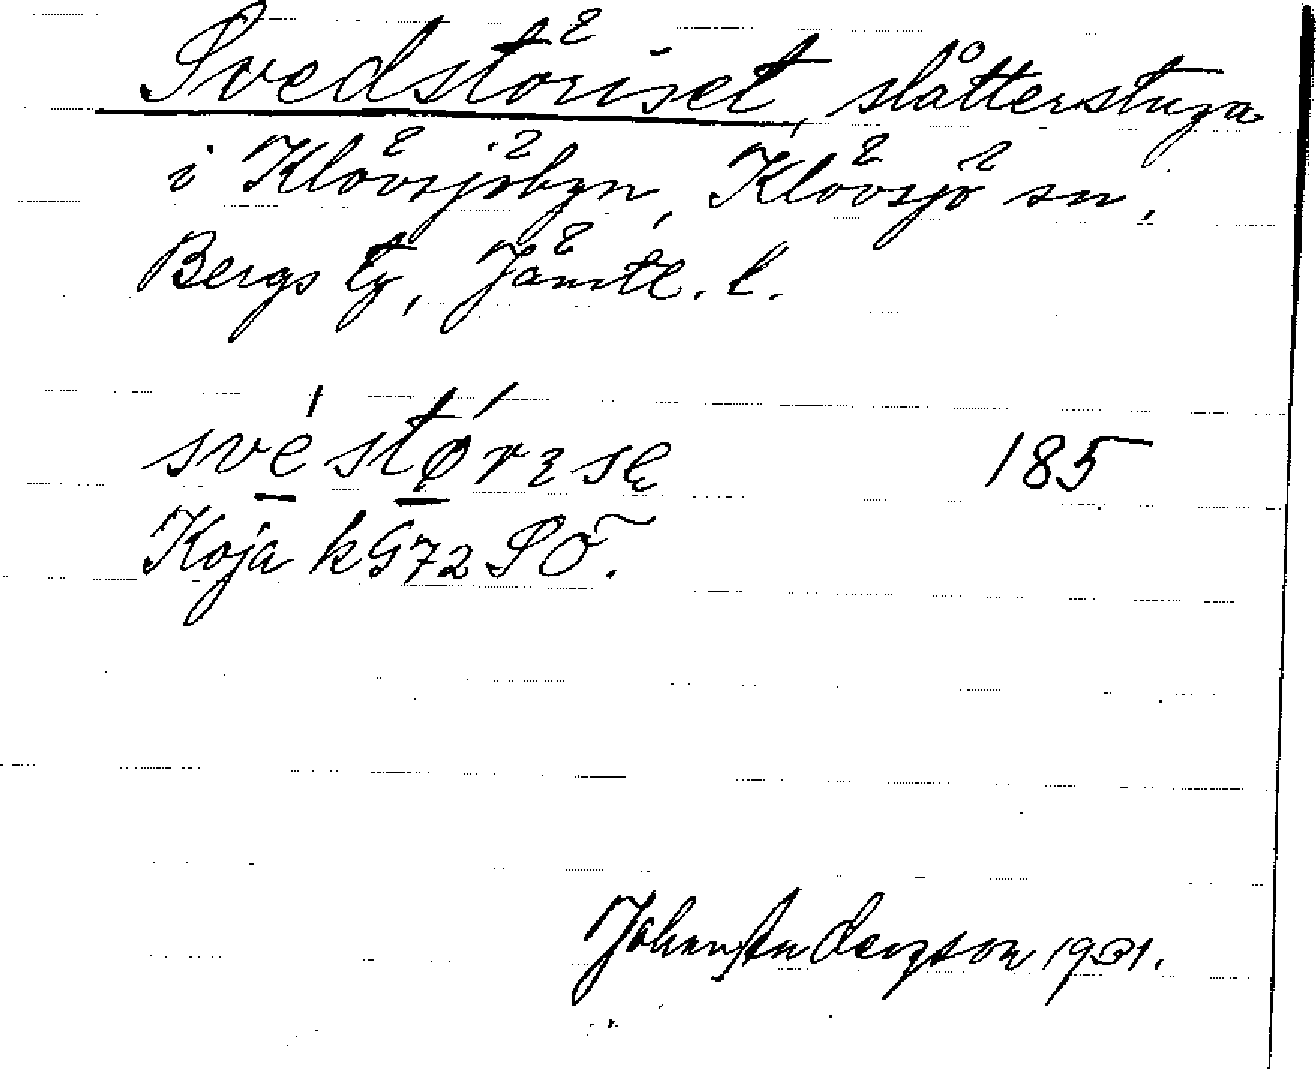 Svedstöriset, slåtterstuga
i Klövsjöbyn, Klövsjö sn,
Bergs tg, Jämtl. l.
své stǿrɪsę 185
Koja k G72 SÖ.
Johan Anderzson 1931.